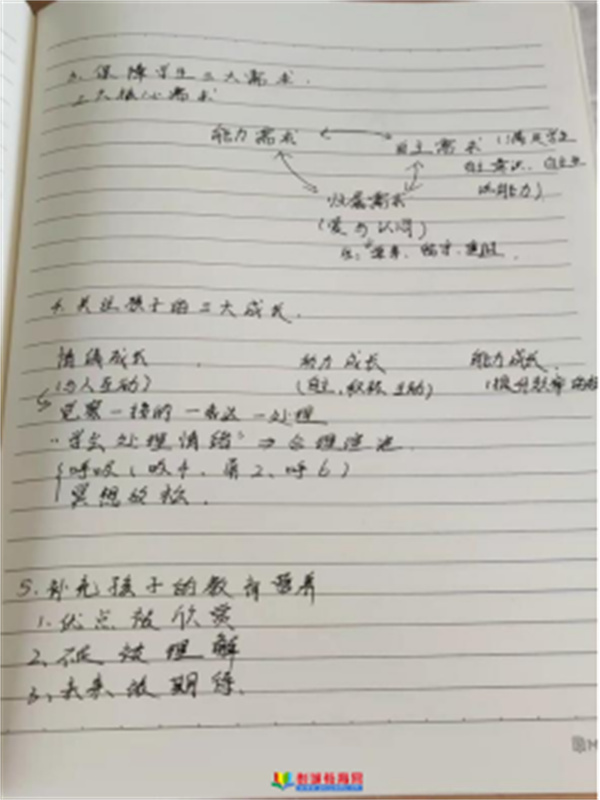 3、保障学生三大需求.
三大核心需求
能力需求
自主需求（满足学生
自主意识、自主
能力）
归属需求
（爱与认同）
4.关注孩子的三大成长.
情绪成长
动力成长
能力成长
（与人互动）
（自主、积极、主动）
觉察一接纳一表达一处理
"学会处理情绪"⇒合理
呼吸（吸4、屏2、呼6）
冥想放松.
5.补充孩子的教育营养
1.优点被欣赏
2、被理解
3、未来被期待.